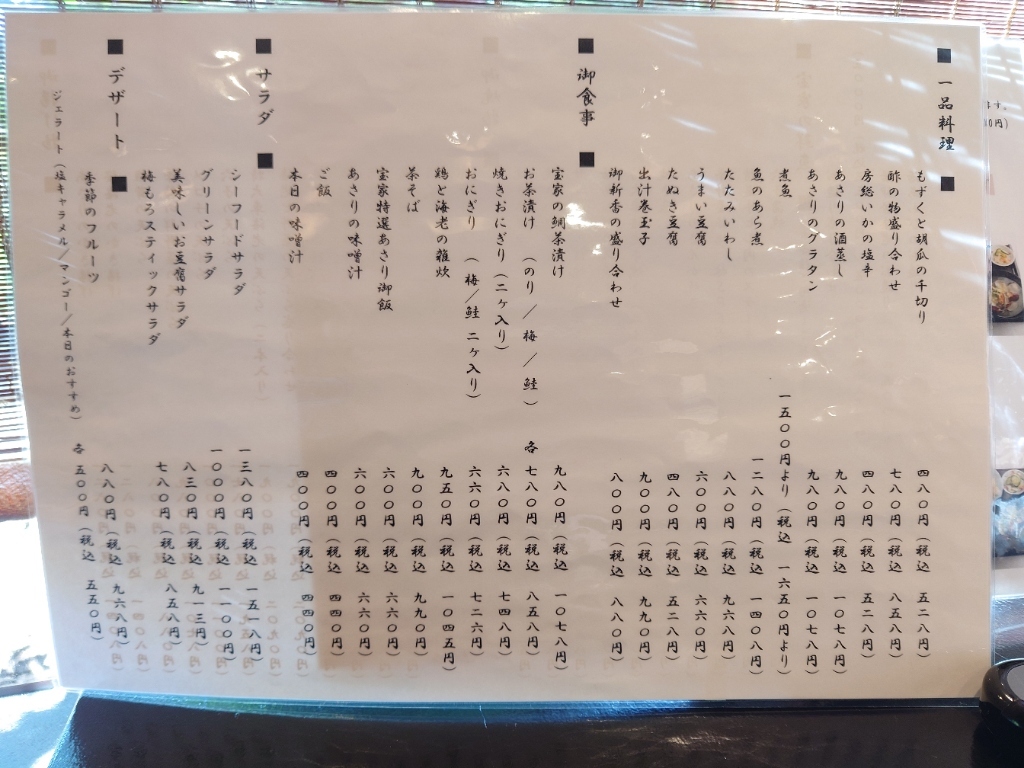 ■ 一品料理 ■
もずくと胡瓜の千切り 四八〇円(税込 五二八円)
酢の物盛り合わせ 七八〇円(税込 八五八円)
房総いかの塩辛 四八〇円(税込 五二八円)
あさりの酒蒸し 九八〇円(税込 一〇七八円)
あさりのグラタン 九八〇円(税込 一〇七八円)
煮魚 一五〇〇円より(税込 一六五〇円より)
魚のあら煮 一二八〇円(税込 一四〇八円)
たたみいわし 八八〇円(税込 九六八円)
うまい豆腐 六〇〇円(税込 六六〇円)
たぬき豆腐 四八〇円(税込 五二八円)
出汁巻玉子 九〇〇円(税込 九九〇円)
御新香の盛り合わせ 八〇〇円(税込 八八〇円)
■ 御食事 ■
宝家の鯛茶漬け 九八〇円(税込 一〇七八円)
お茶漬け(のり/梅/鮭) 各 七八〇円(税込 八五八円)
焼きおにぎり(二ヶ入り) 六八〇円(税込 七四八円)
おにぎり(梅/鮭 二ヶ入り) 六六〇円(税込 七二六円)
鶏と海老の雑炊 九五〇円(税込 一〇四五円)
茶そば 九〇〇円(税込 九九〇円)
宝家特選あさり御飯 六〇〇円(税込 六六〇円)
あさりの味噌汁 六〇〇円(税込 六六〇円)
ご飯 四〇〇円(税込 四四〇円)
本日の味噌汁 四〇〇円(税込 四四〇円)
■ サラダ ■
シーフードサラダ 一三八〇円(税込 一五一八円)
グリーンサラダ 一〇〇〇円(税込 一一〇〇円)
美味しいお豆腐サラダ 八三〇円(税込 九一三円)
梅もろスティックサラダ 七八〇円(税込 八五八円)
■ デザート ■
季節のフルーツ 八八〇円(税込 九六八円)
ジェラート(塩キャラメル/マンゴー/本日のおすすめ) 各 五〇〇円(税込 五五〇円)